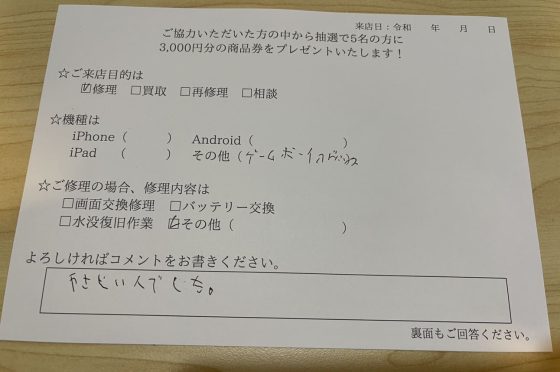 来店日：令和　　年　　月　　日
ご協力いただいた方の中から抽選で5名の方に
3,000円分の商品券をプレゼントいたします！
☆ご来店目的は
☑修理　□買取　□再修理　□相談
☆機種は
iPhone（　　　）　Android（　　　　　　　）
iPad　（　　　）　その他（ゲームボーイ
☆ご修理の場合、修理内容は
□画面交換修理　□バッテリー交換
□水没復旧作業　☑その他（　　　　　　　）
よろしければコメントをお書きください。
やさしい人でした。
裏面もご回答ください。